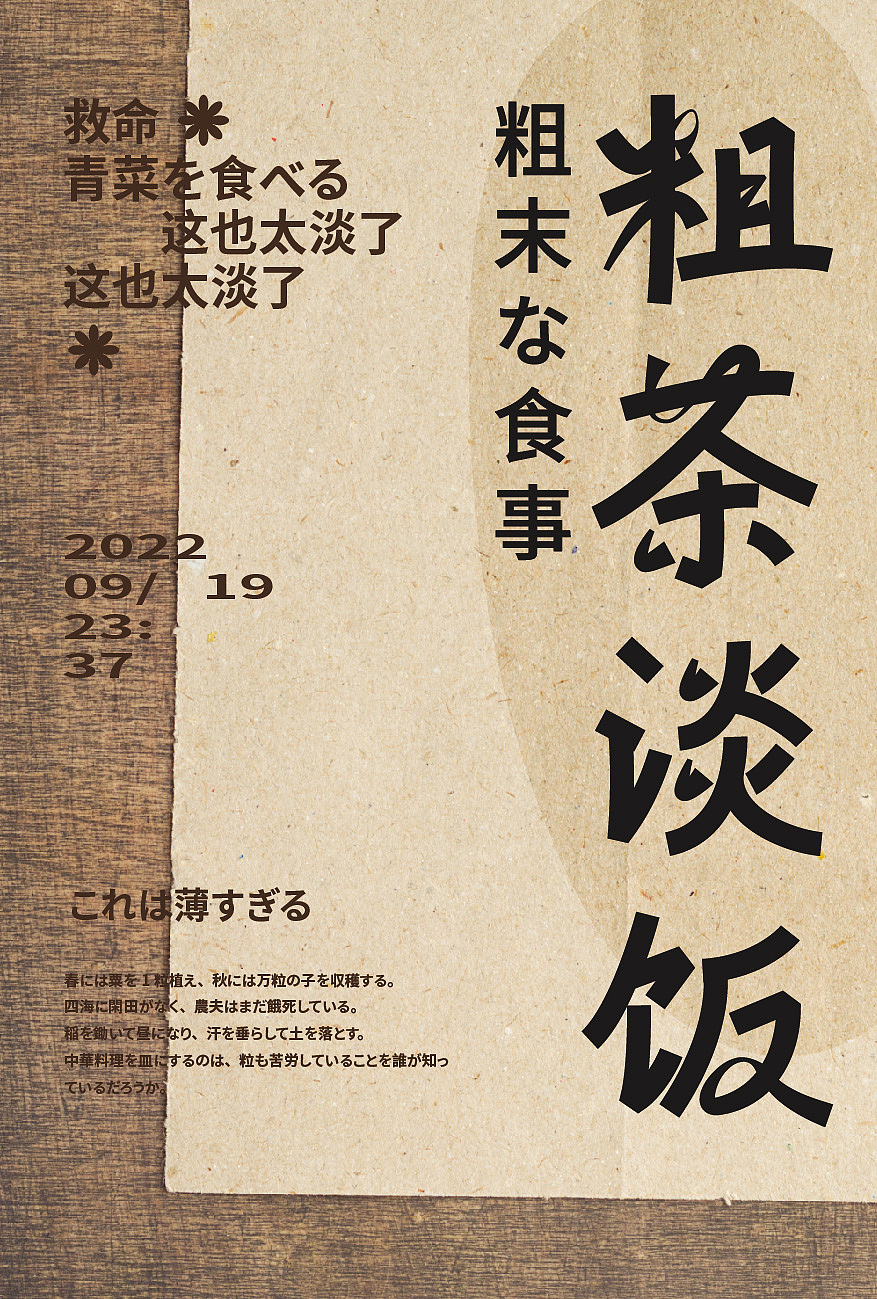 粗茶淡饭
粗末な食事
救命
青菜を食べる
这也太淡了
这也太淡了
2022
09/ 19
23:
37
これは薄すぎる
春には粟を１粒植え、秋には万粒の子を収穫する。
四海に閑田がなく、農夫はまだ餓死している。
稲を鋤いて昼になり、汗を垂らして土を落とす。
中華料理を皿にするのは、粒も苦労していることを誰が知っ
ているだろうか。